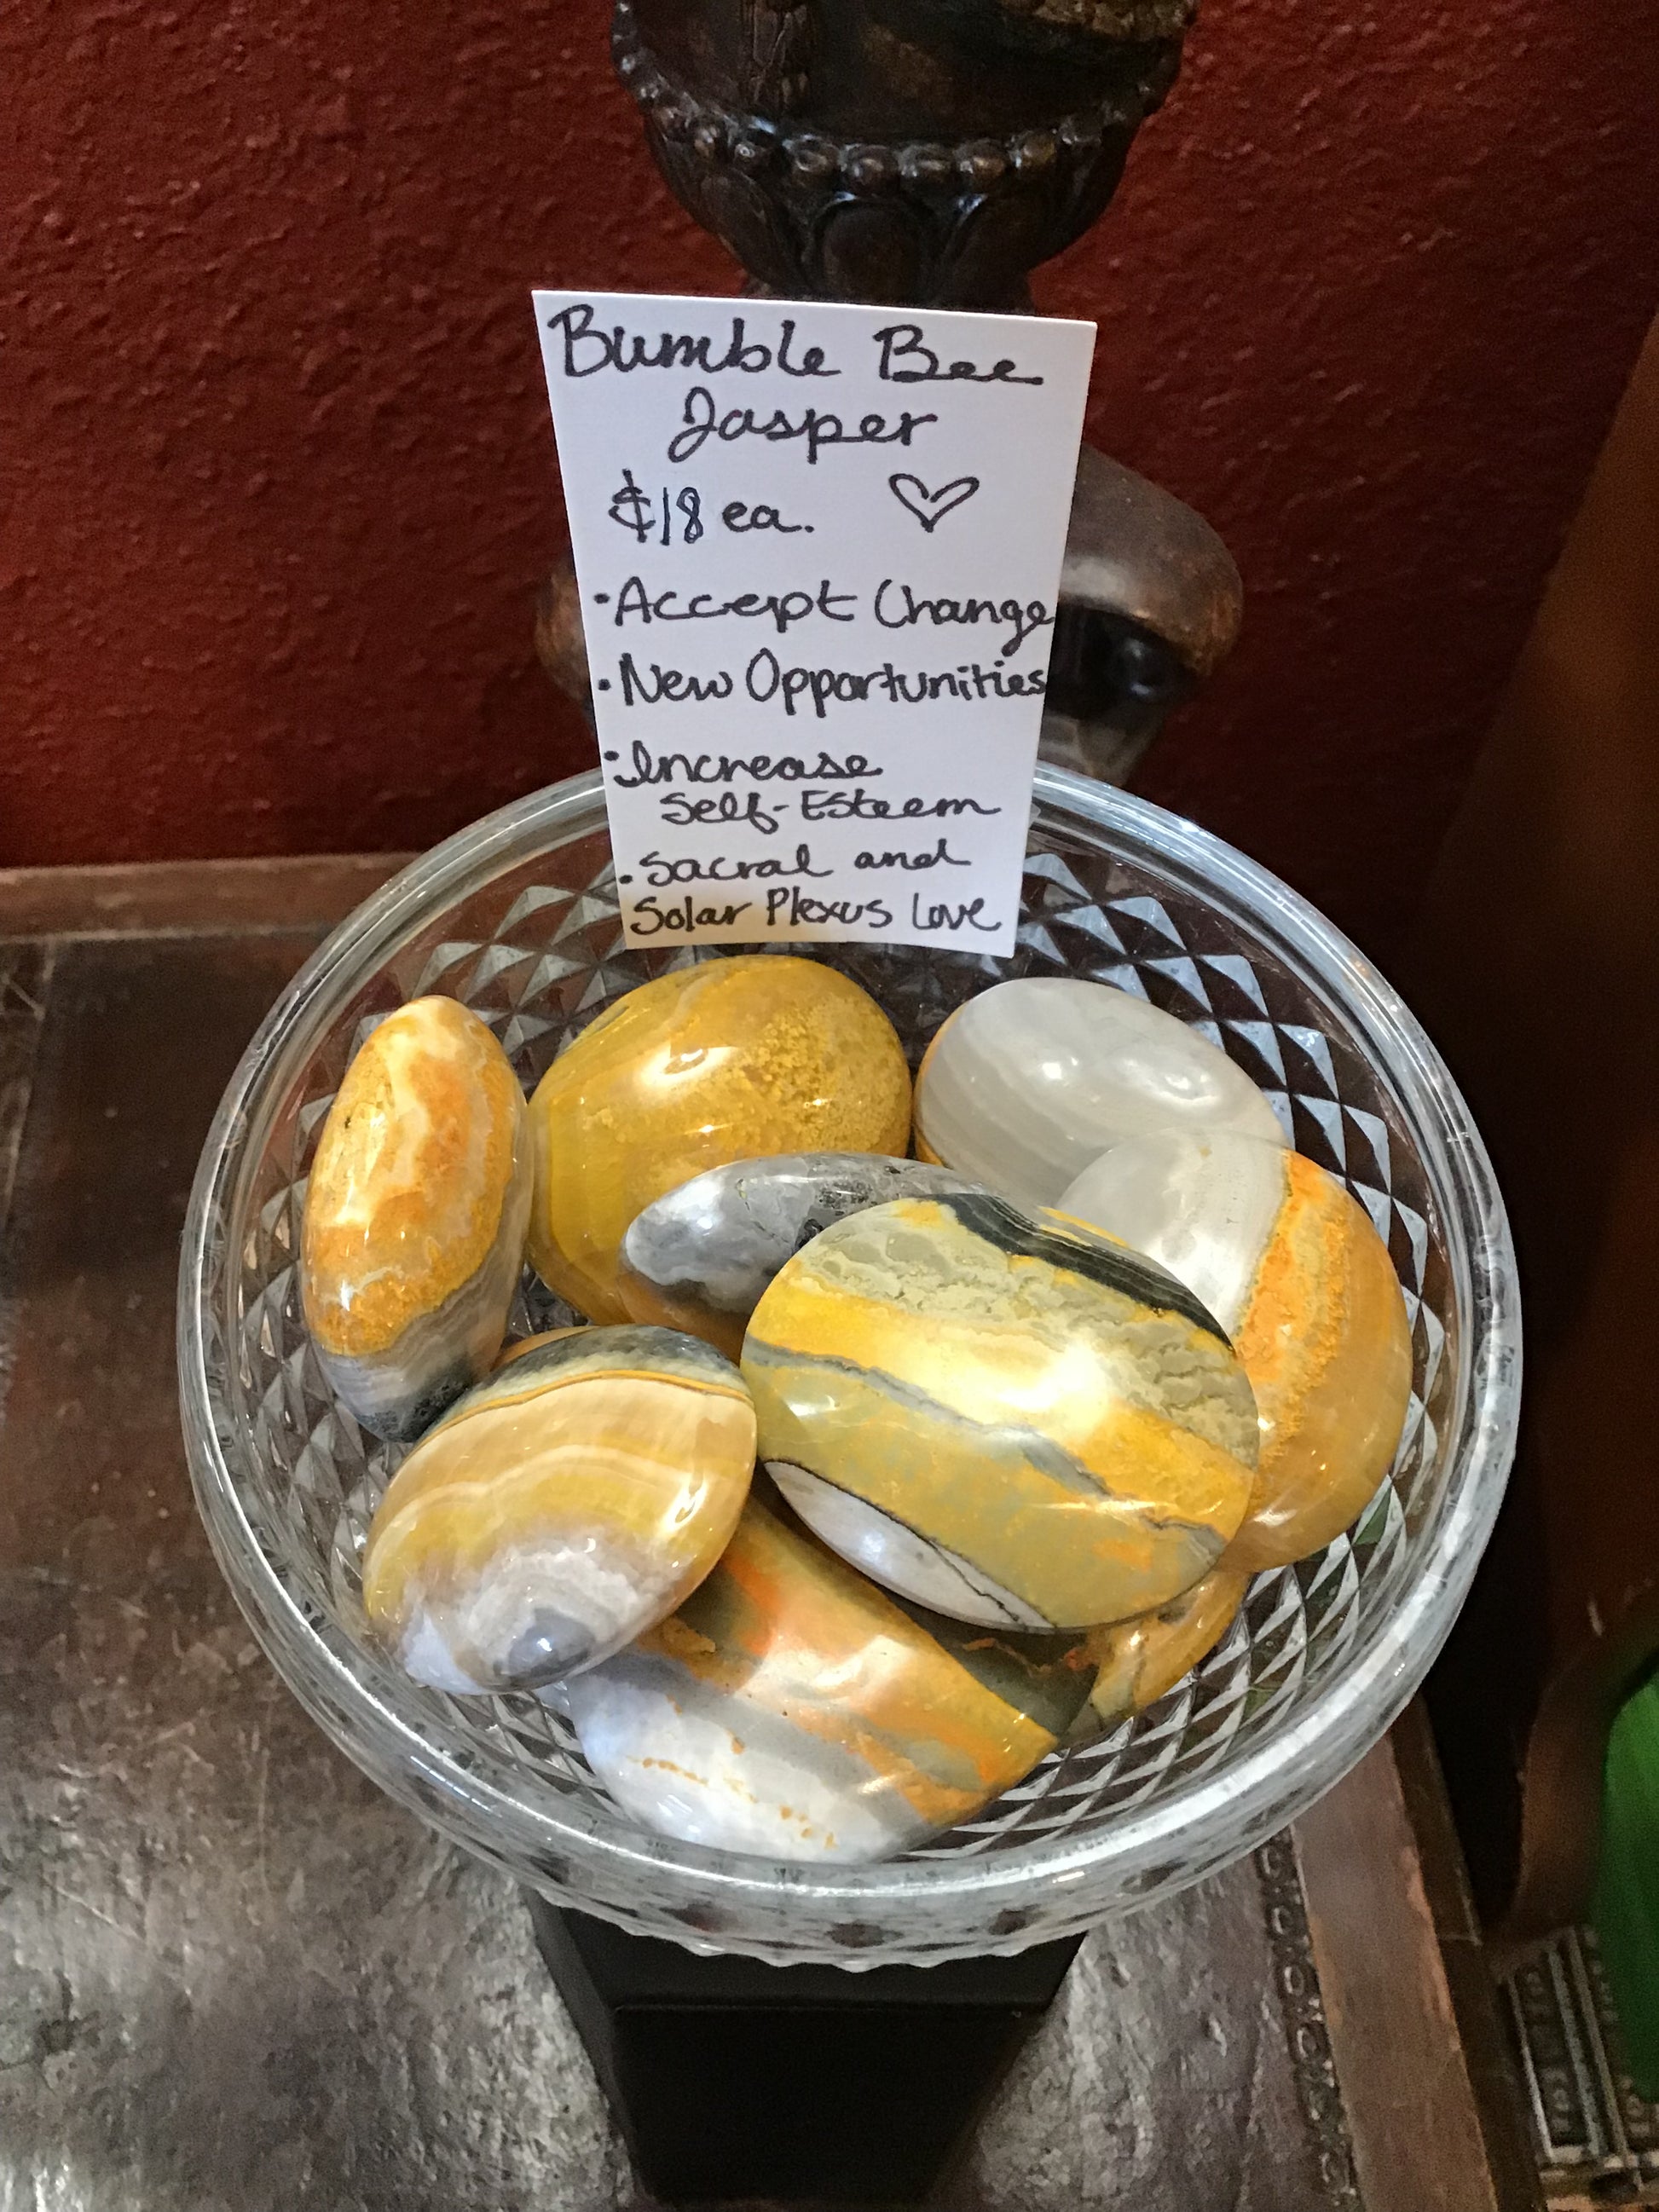 Bumble Bee
Jasper
$18 ea. ♡
· Accept Change
· New Opportunities
· Increase
Self-Esteem
· Sacral and
Solar Plexus Love